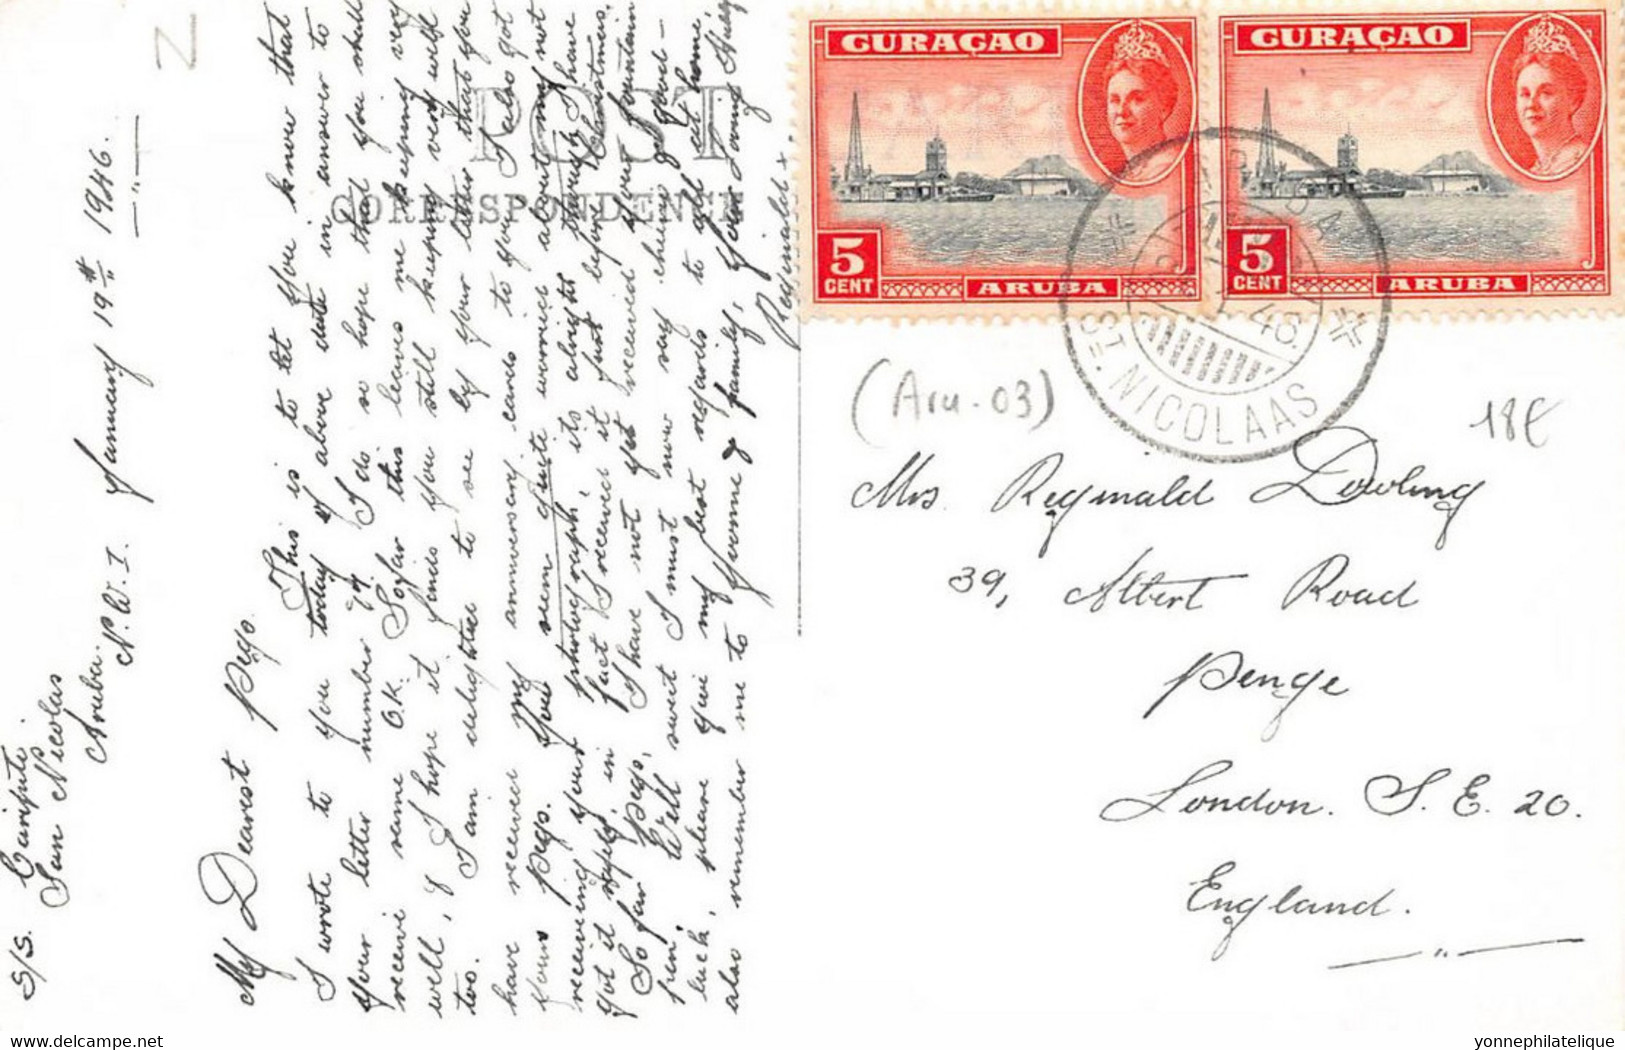 S/S. Caripito
San Nicolas
Aruba.
N.W.I.
January 19th 1946.
My Dearest Pegs.
This is to let you know that
I wrote to you today of above date in answer to
your letter number 97. I do so hope that you shall
receive same O.K. So far this leaves me keeping very
well, & I hope it finds you still keeping very well
too. I am delighted to see by your letter that you
have received my anniversary cards to you. I also got
yours Pegs. You seem quite worried about my not
receiving your photograph, its alright though I have
got it safe, in fact I received it just before Christmas.
So far Pegs, I have not yet received your fountain
pen. Well sweet I must now say cheerio & good-
luck, please give my best regards to all at home
also remember me to Yvonne & family, Your Loving Hubby
Reginald x
POST
CORRESPONDENCE
CURAÇAO
5
CENT
ARUBA
CURAÇAO
5
CENT
ARUBA
ST. NICOLAAS
46.
(Aru-03)
18€
Mrs. Reginald Dowling
39, Albert Road
Penge
London. S.E. 20.
England.
delcampe.net
yonnephilatelique